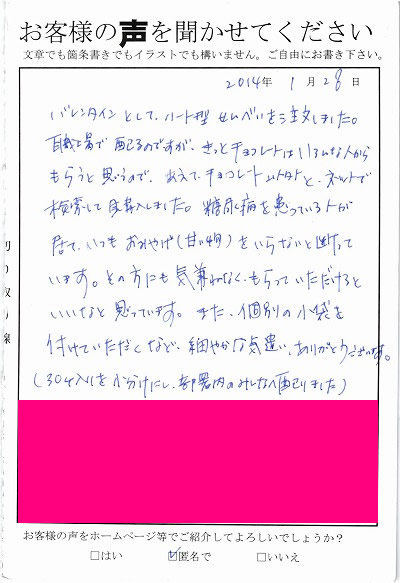 お客様の声を聞かせてください
文章でも箇条書きでもイラストでも構いません。ご自由にお書き下さい。
2014年 1月28日
バレンタインとして、ハート型せんべいを注文しました。
職場で配るのですが、きっとチョコレートはいろんな人から
もらうと思うので、あえてチョコレート以外と、ネットで
検索して購入しました。糖尿病を患っている人が
居て、いつもおみやげ(甘い物)をいらないと断って
います。その方にも気兼ねなく、もらっていただけると
いいなと思っています。また、個別の小袋を
付けていただくなど、細やかな気遣い、ありがとうございます。
(30ヶ入りを小分けにし、部署内のみんなへ配りました)
切り取り線
お客様の声をホームページ等でご紹介してよろしいでしょうか?
□はい ☑匿名で □いいえ